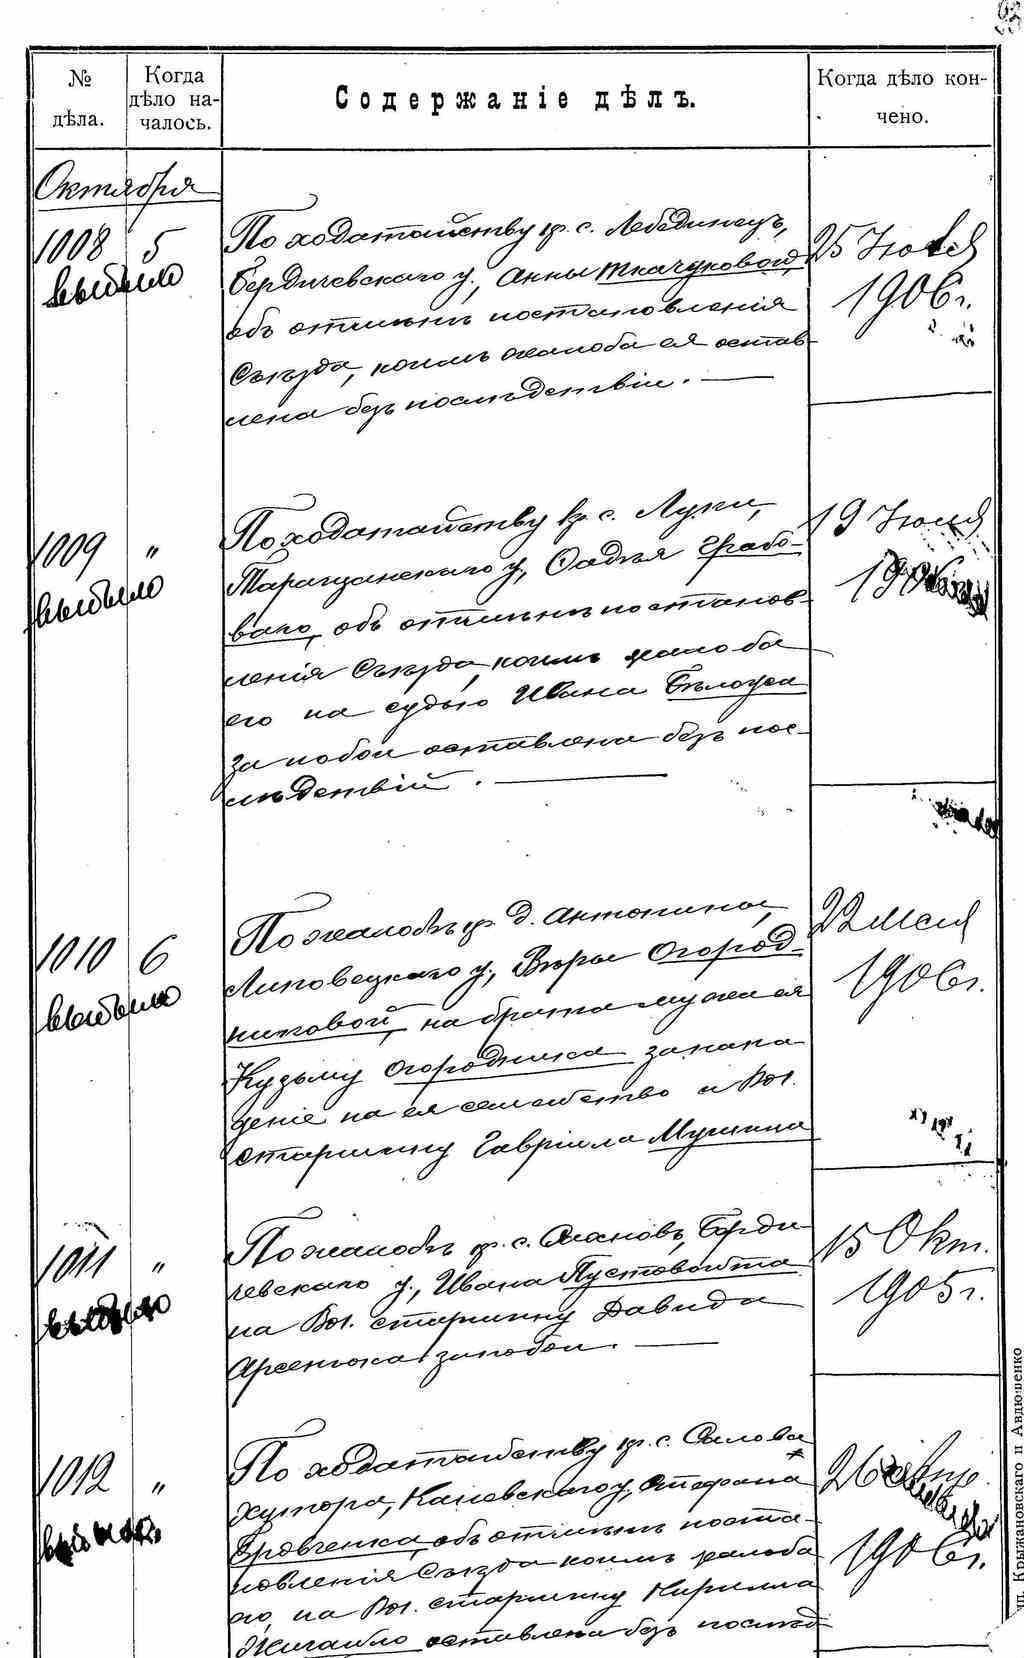 №
дѣла.
Когда
дѣло на-
чалось.
Содержаніе дѣлъ.
Когда дѣло кон-
чено.
Октября
1008 5
выбыло
По ходатайству кр. с. Лебединецъ,
Бердичевскаго у., Анны Ткачуковой,
объ отмѣнѣ постановленія
Съѣзда, коимъ жалоба ея остав-
лена безъ послѣдствій. —
25 Іюля
1906 г.
1009 "
выбыло
По ходатайству кр. с. Луки,
Таращанскаго у.,
объ отмѣнѣ постанов-
ленія Съѣзда, коимъ жалоба
его на судью Ивана Бѣлоуса
за побои оставлена безъ пос-
лѣдствій. —
19 Іюля
1010 6
выбыло
По жалобѣ кр. д. Антонины,
Липовецкаго у., Вѣры Огород-
никовой, на брата мужа ея
Кузьму Огородника за напа-
деніе на ея семейство и Вол.
старшину Гавріила
22 Мая
1906 г.
1011 "
выбыло
По жалобѣ кр. с. Берди-
чевскаго у., Ивана Пустовойта
на Вол. старшину Давида
Арсенюка за побои. —
15 Окт.
1905 г.
1012 "
По ходатайству кр. с.
Хутора, Каневскаго у., Стефана
объ отмѣнѣ поста-
новленія Съѣзда коимъ жалоба
его на Вол. старшину Кирилла
оставлена безъ послѣд
26
1906 г.
Крыжановскаго и Авдюшенко